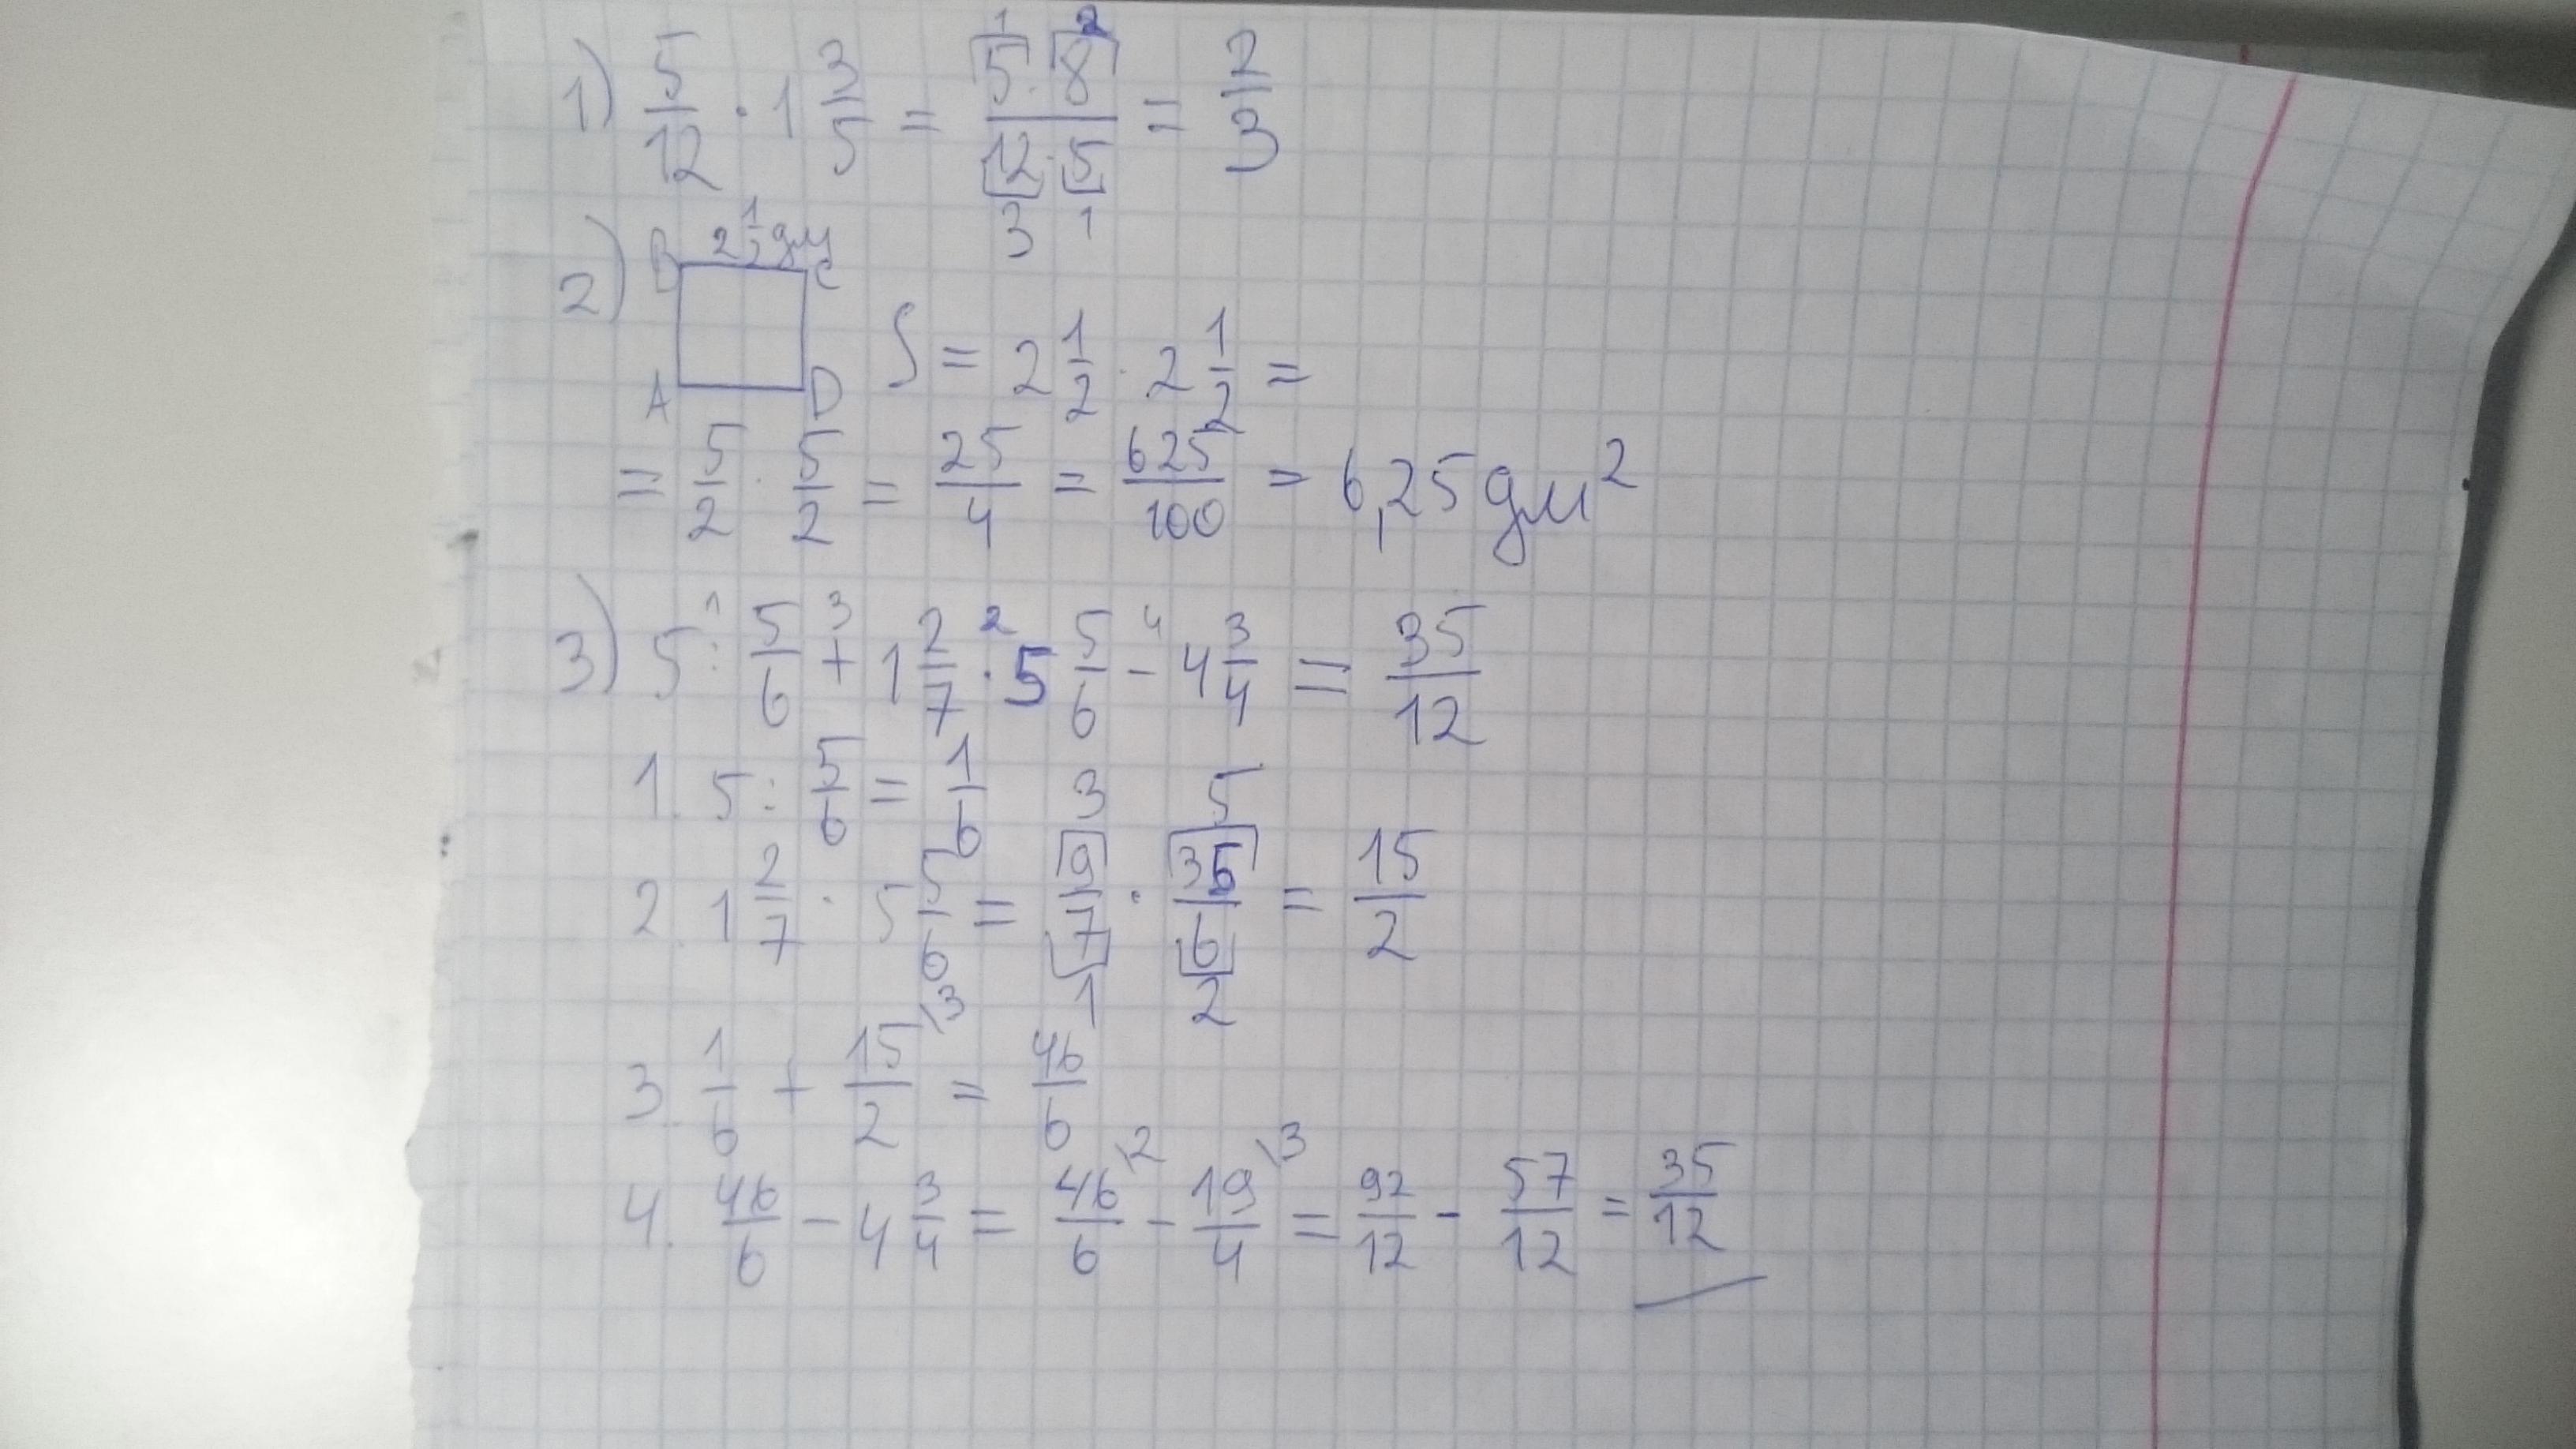 1) 5/12 · 1 3/5 = 5·8/12·5 = 2/3
1 2
3 1
2) B 2 1/2 дм C
A D
S = 2 1/2 · 2 1/2 =
= 5/2 · 5/2 = 25/4 = 625/100 = 6,25 дм²
3) 5 : 5/6 + 1 2/7 · 5 5/6 - 4 3/4 = 35/12
1 3 2 4
1. 5 : 5/6 = 1/6
2. 1 2/7 · 5 5/6 = 9/7 · 35/6 = 15/2
3 5
1 2
3. 1/6 + 15/2 \3 = 46/6
4. 46/6 - 4 3/4 = 46/6 \2 - 19/4 \3 = 92/12 - 57/12 = 35/12